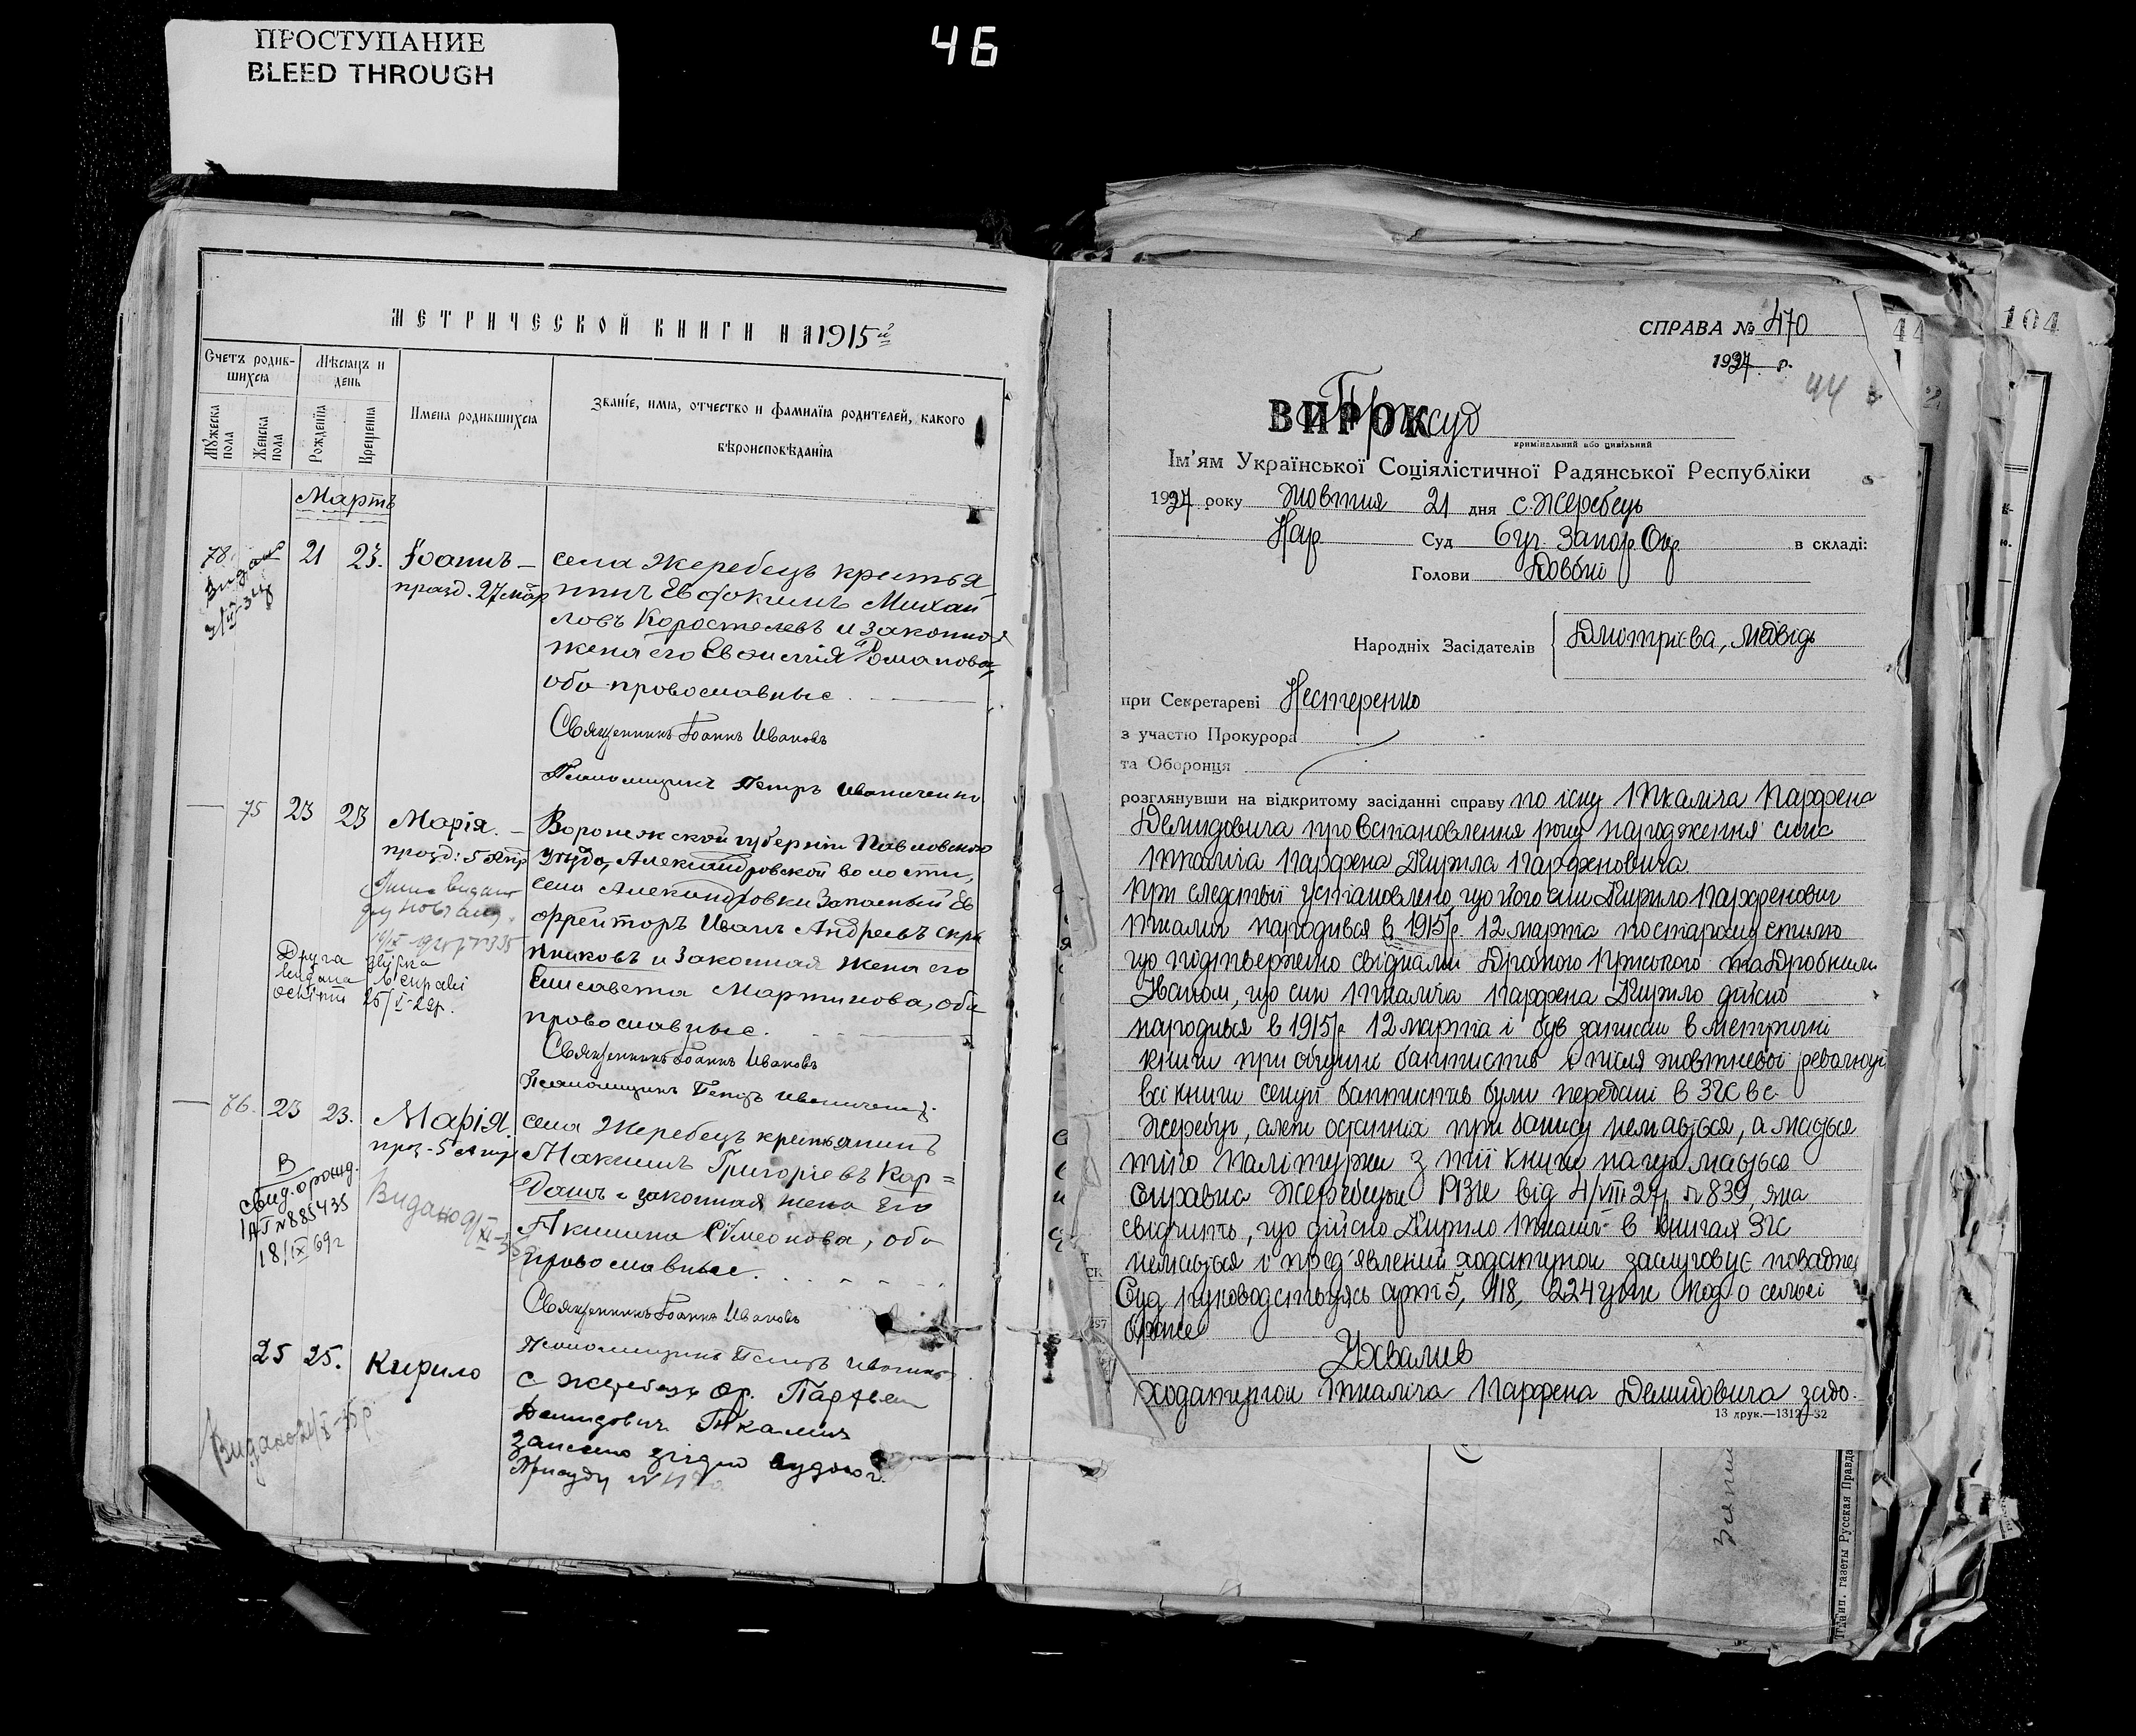 ПРОСТУПАНИЕ
BLEED THROUGH
46
МЕТРИЧЕСКОЙ КНИГИ НА 1915 й
Счетъ родившихся
Мѣсяцъ и день
Мужеска пола
Женска пола
Рожденія
Крещенія
Имена родившихся
Званіе, имя, отчество и фамилія родителей, какого
вѣроисповѣданія
Мартъ
78. 21 23. Іоаннъ –
празд. 27 мар
Видано
села Жеребецъ крестья-
нинъ Евфокимъ Михай
ловъ Коростелевъ и законная
жена его Евфимія Романова,
оба православные.
Священникъ Іоаннъ Ивановъ
Псаломщикъ Петръ Иваниченко
75 23 23 Марія. –
празд: 5 Апр
Воронежской губерніи Павловского
уѣзда, Александровской волости,
села Александровки Запасный Еф
рейторъ Иванъ Андреевъ Скры
пниковъ и законная жена его
Елисавета Мартинова, оба
православные.
Священникъ Іоаннъ Ивановъ
Псаломщикъ Петръ Иваниченко
Друга
видана
25/X-29р.
76. 23 23. Марія.
праз - 5 Апр
села Жеребецъ крестьянинъ
Максимъ Григоріевъ Кар=
дашъ и законная жена его
Акилина Сѵмеонова, оба
православные.
Священникъ Іоаннъ Ивановъ
Псаломщикъ Петръ Иваниченко
В
свид. о рожд.
№885435
18/IX 69г
Видано 9/XI-35
25 25. Кирило
с Жеребець гр. Парфен
Демидович Ткалич
записано згідно судового
Присуду № 470
Видано 21/X-35р.
СПРАВА № 470
1927 р.
44
44
104
ВИРОК
Присуд
кримінальний або цивільний
Ім'ям Української Соціялістичної Радянської Республіки
1927 року Жовтня 21 дня с. Жеребець
Нар Суд 6 уч. Запор Окр в складі:
Голови Довбні
Народніх Засідателів Дмитрієва, Медвідь
при Секретареві Нестеренко
з участю Прокурора
та Оборонця
розглянувши на відкритому засіданні справу по іску Ткаліча Парфена
Демидовича про встановлення року народження сина
Ткаліча Парфена Кирила Парфеновича.
При следствії установлено, що його син Кирило Парфенович
Ткалич народився в 1915/р. 12 марта по старому стилю
що підтвержено свідками Драного та Дробним
Іваном, що син Ткаліча Парфена Кирило дійсно
народився в 1915/р 12 марта і був записан в метричні
книги при общині баптистів і після жовтневої революції
всі книги секції баптистів були передані в ЗГС в с.
Жеребці, але останніх при записи немається, а мається
тіко палітурки з тії книги на що мається
Справка Жеребецьк РВК від 4/VIII 27р № 839, яка
свідчить, що дійсно Кирило Ткаліч в книгах ЗГС
немається і пред'явлений ходатунок заслуговує
Суд руководствуясь арт 5, 118, 224 код о сем'ї
браке
Ухвалив
ходатунок Ткаліча Парфена Демидовича задо-
13 друк.—1312—32
Тип. газеты Русская Правда